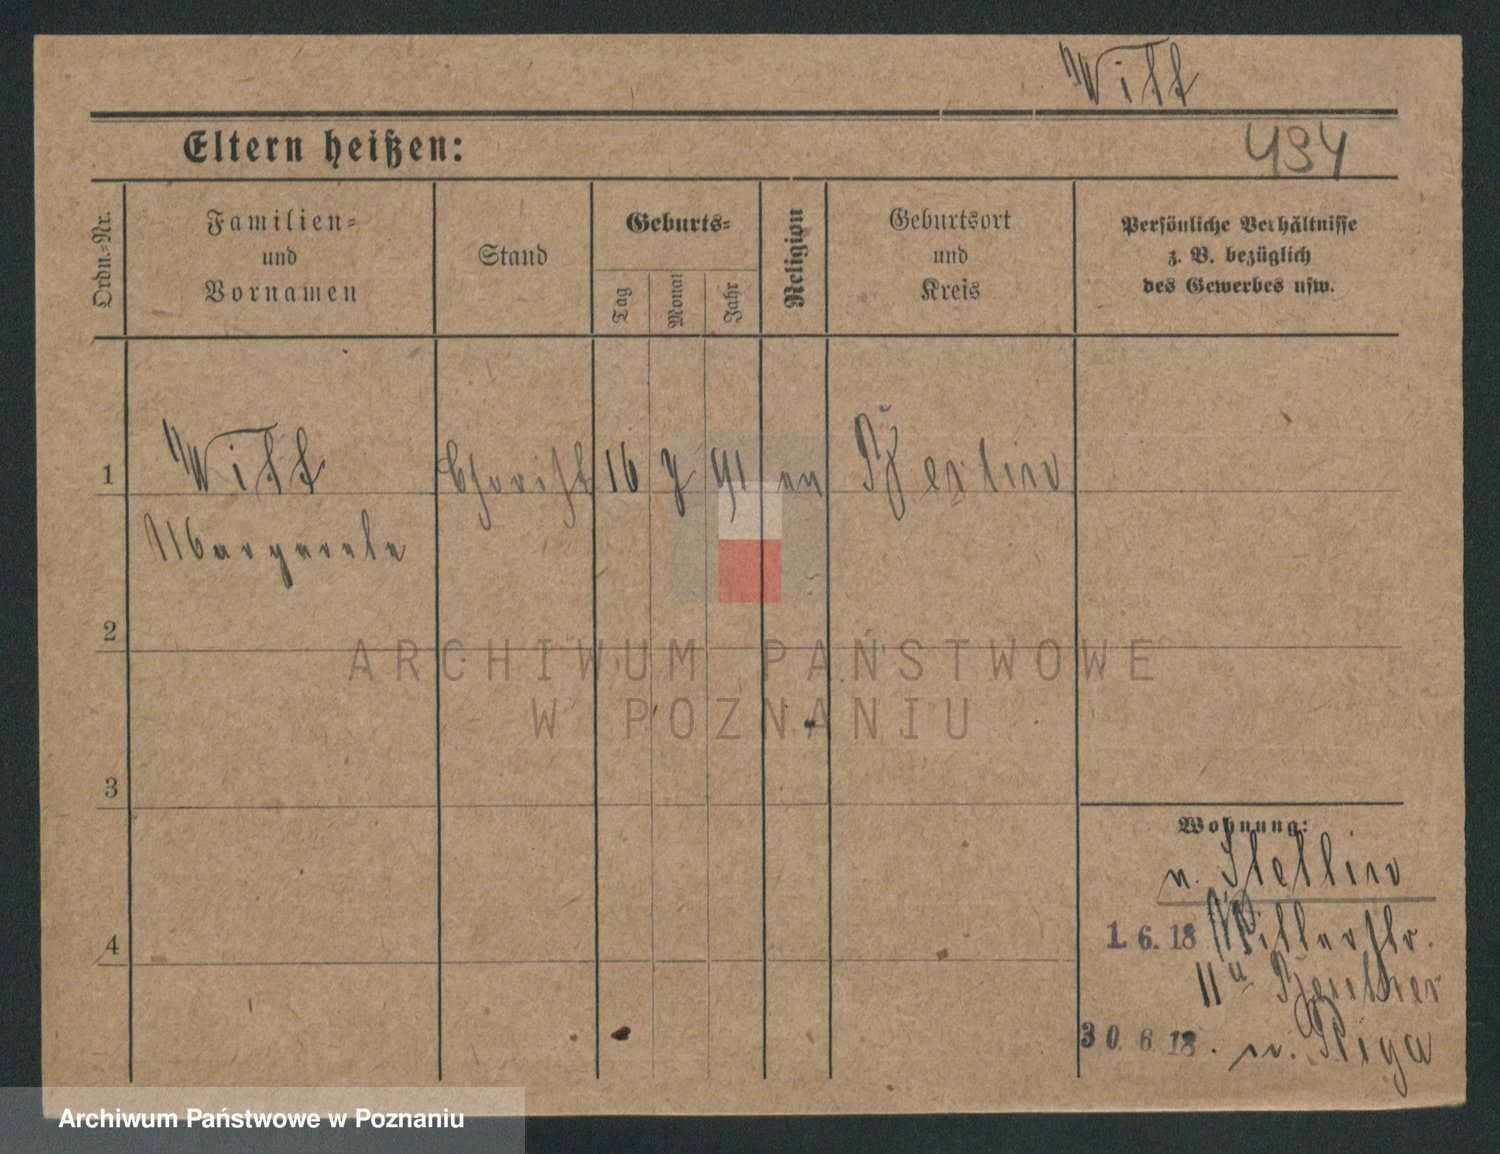 Witt
494
Eltern heißen:
Ordn.-Nr.
Familien-
und
Vornamen
Stand
Geburts-
Tag
Monat
Jahr
Religion
Geburtsort
und
Kreis
Persönliche Verhältnisse
z. B. bezüglich
des Gewerbes usw.
1 Witt 16 7 91 ev Berlin
Margarete
2
3
4
ARCHIWUM PAŃSTWOWE
W POZNANIU
Wohnung:
n. Stettin
1. 6. 18
11
30. 6. 18. n. Riga
Archiwum Państwowe w Poznaniu